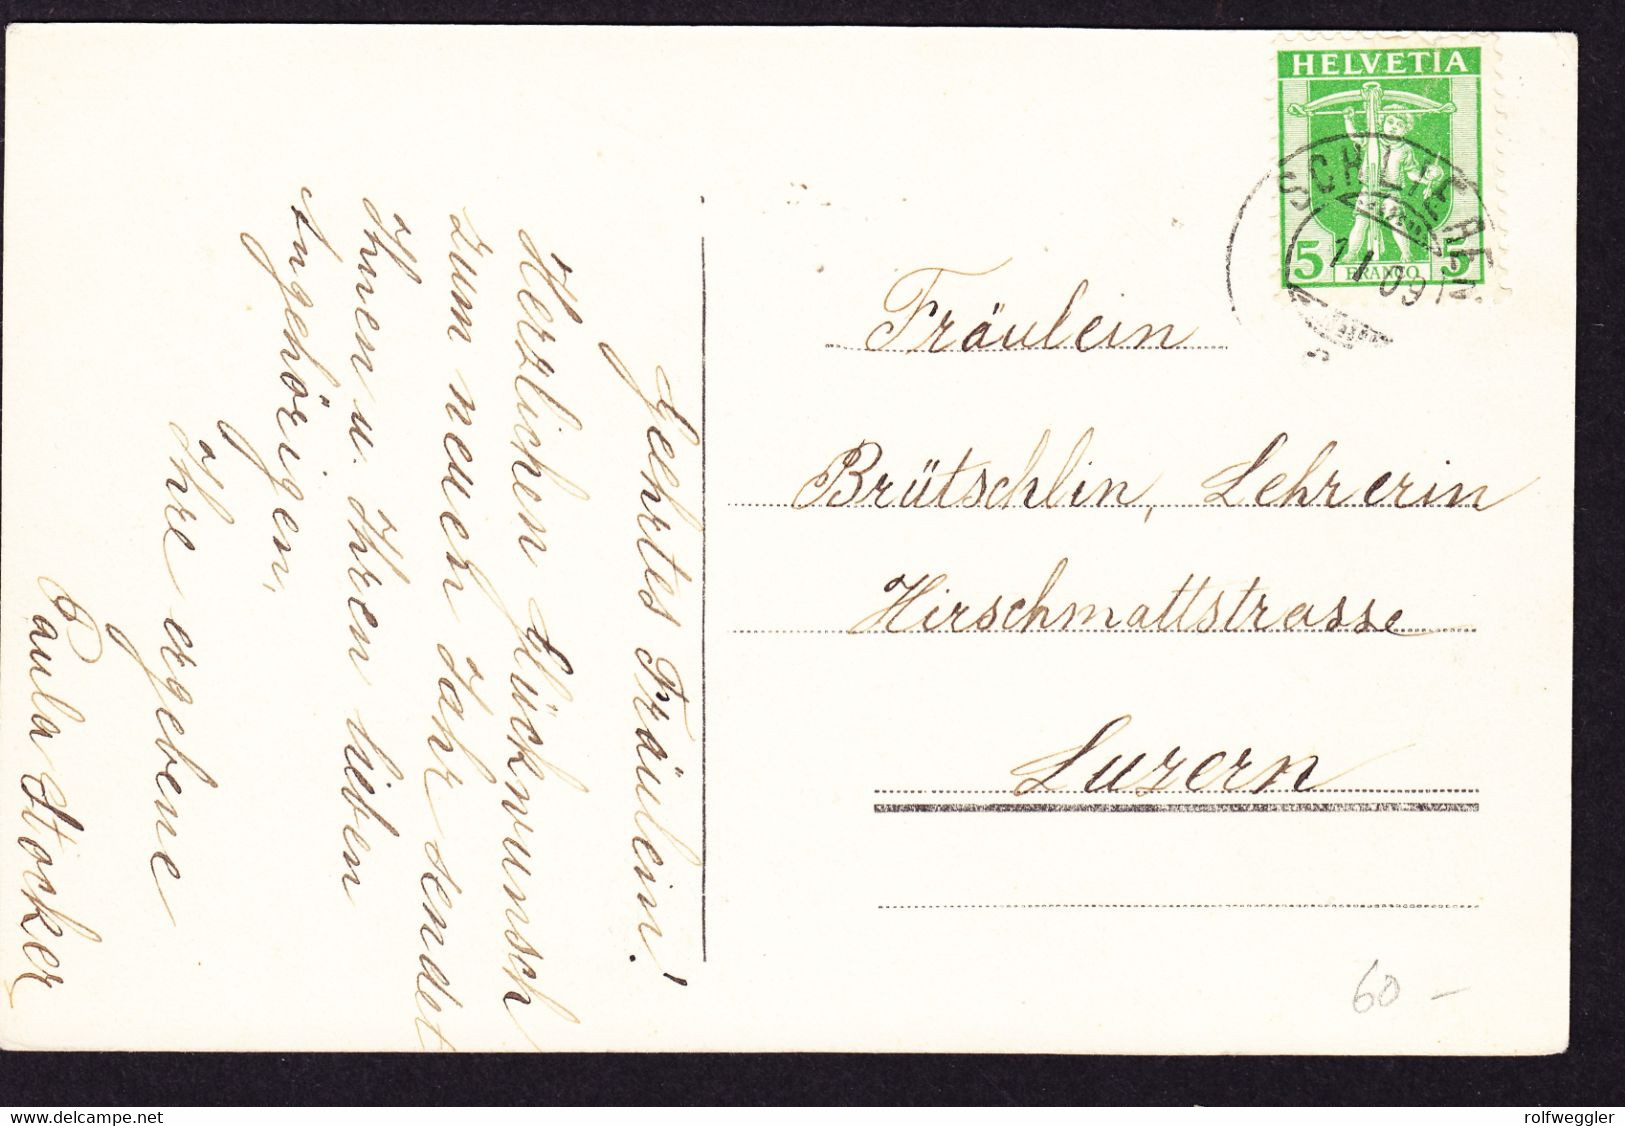 Geehrtes Fräulein!
Herzlichen Glückwunsch
zum neuen Jahr sendet
Ihnen u. Ihren lieben
Angehörigen,
Ihre ergebene
Paula Stocker
HELVETIA
5 FRANCO 5
SCHLIEREN
1 I 09
Fräulein
Brütschlin, Lehrerin
Hirschmattstrasse
Luzern
60 –
www.delcampe.net
rolfweggler